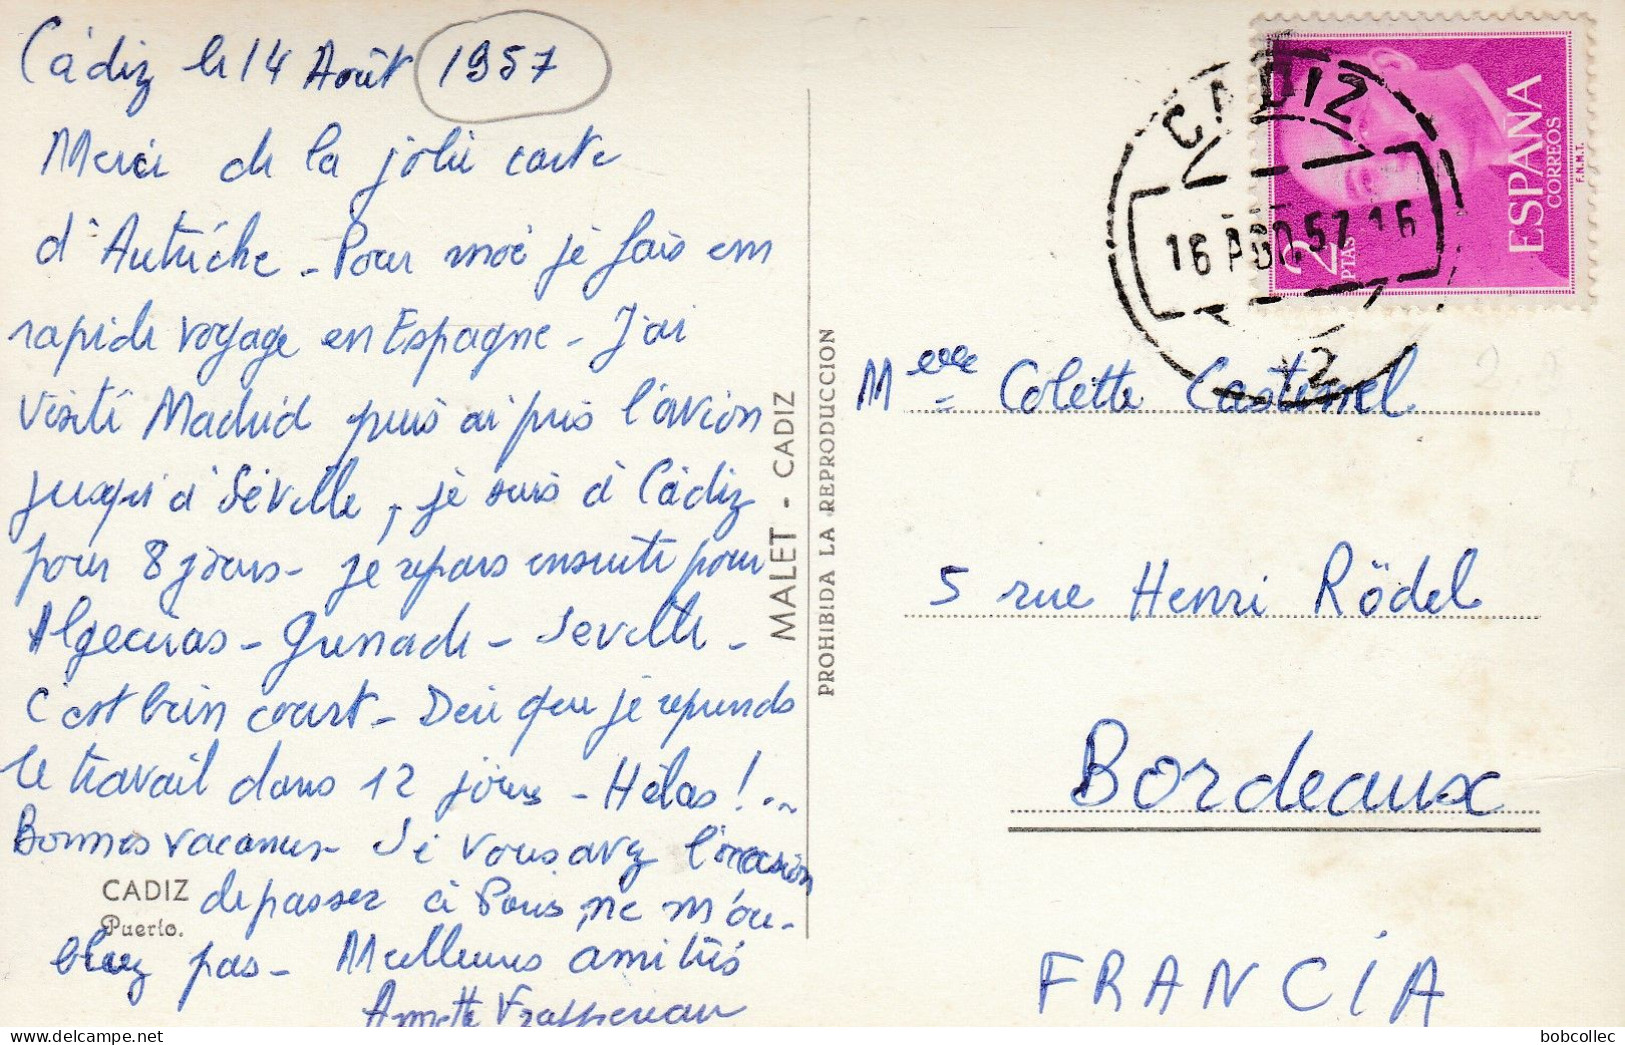 Cádiz le 14 Août 1957
Merci de la jolie carte
d'Autriche - Pour moi je fais un
rapide voyage en Espagne - J'ai
visité Madrid puis ai pris l'avion
jusqu'à Séville, je suis à Cádiz
pour 8 jours - je repars ensuite pour
Algeciras - Grenade - Seville -
C'est bien court - Dire que je reprends
le travail dans 12 jours - Hélas !..
Bonnes vacances - Si vous avez l'occasion
de passer à Paris, ne m'ou-
bliez pas - Meilleures amitiés
Annette
CADIZ
Puerto.
MALET - CADIZ
PROHIBIDA LA REPRODUCCION
CADIZ
16 AGO. 57 16
2
PTAS
ESPAÑA
CORREOS
F.N.M.T.
Melle Colette Castinel
5 rue Henri Rödel
Bordeaux
FRANCIA
bobcollec